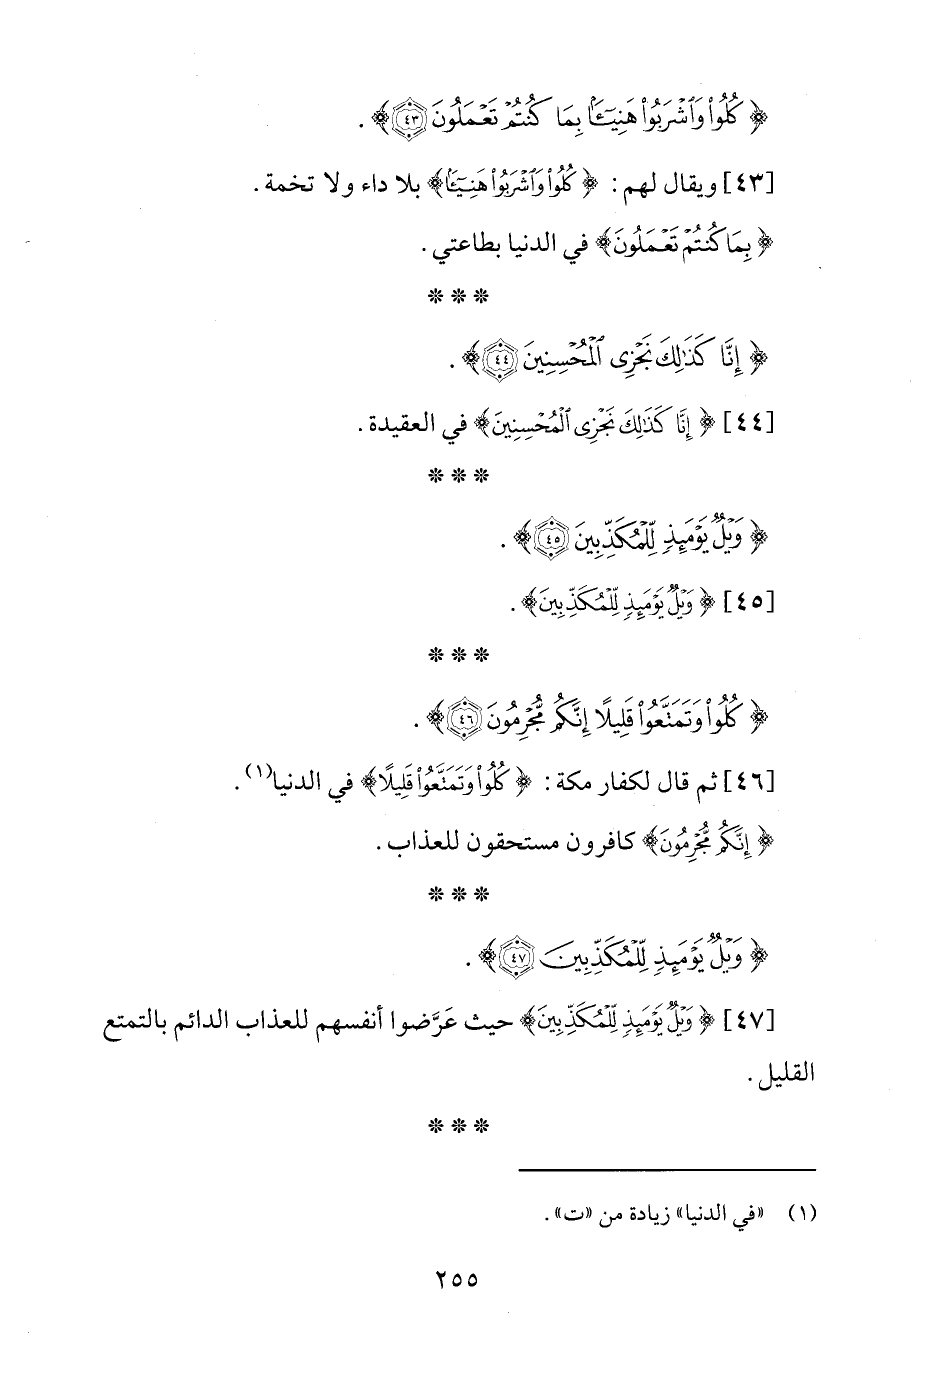 ﴿كُلُوا۟ وَٱشْرَبُوا۟ هَنِيٓـًٔۢا بِمَا كُنتُمْ تَعْمَلُونَ ٤٣﴾ .
[٤٣] ويقال لهم : ﴿كُلُوا۟ وَٱشْرَبُوا۟ هَنِيٓـًٔا﴾ بلا داء ولا تخمة .
﴿بِمَا كُنتُمْ تَعْمَلُونَ﴾ في الدنيا بطاعتي .
* * *
﴿إِنَّا كَذَٰلِكَ نَجْزِى ٱلْمُحْسِنِينَ ٤٤﴾ .
[٤٤] ﴿إِنَّا كَذَٰلِكَ نَجْزِى ٱلْمُحْسِنِينَ﴾ في العقيدة .
* * *
﴿وَيْلٌ يَوْمَئِذٍ لِّلْمُكَذِّبِينَ ٤٥﴾ .
[٤٥] ﴿وَيْلٌ يَوْمَئِذٍ لِّلْمُكَذِّبِينَ﴾ .
* * *
﴿كُلُوا۟ وَتَمَتَّعُوا۟ قَلِيلًا إِنَّكُم مُّجْرِمُونَ ٤٦﴾ .
[٤٦] ثم قال لكفار مكة : ﴿كُلُوا۟ وَتَمَتَّعُوا۟ قَلِيلًا﴾ في الدنيا(١) .
﴿إِنَّكُم مُّجْرِمُونَ﴾ كافرون مستحقون للعذاب .
* * *
﴿وَيْلٌ يَوْمَئِذٍ لِّلْمُكَذِّبِينَ ٤٧﴾ .
[٤٧] ﴿وَيْلٌ يَوْمَئِذٍ لِّلْمُكَذِّبِينَ﴾ حيث عَرَّضوا أنفسهم للعذاب الدائم بالتمتع
القليل .
* * *
(١) «في الدنيا» زيادة من «ت» .
٢٥٥